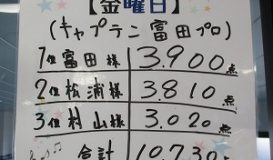 【金曜日】
(キャプテン富田プロ)
1位 富田 様 3.900点
2位 松浦 様 3.810点
3位 村山 様 3.020点
合計 10.730点